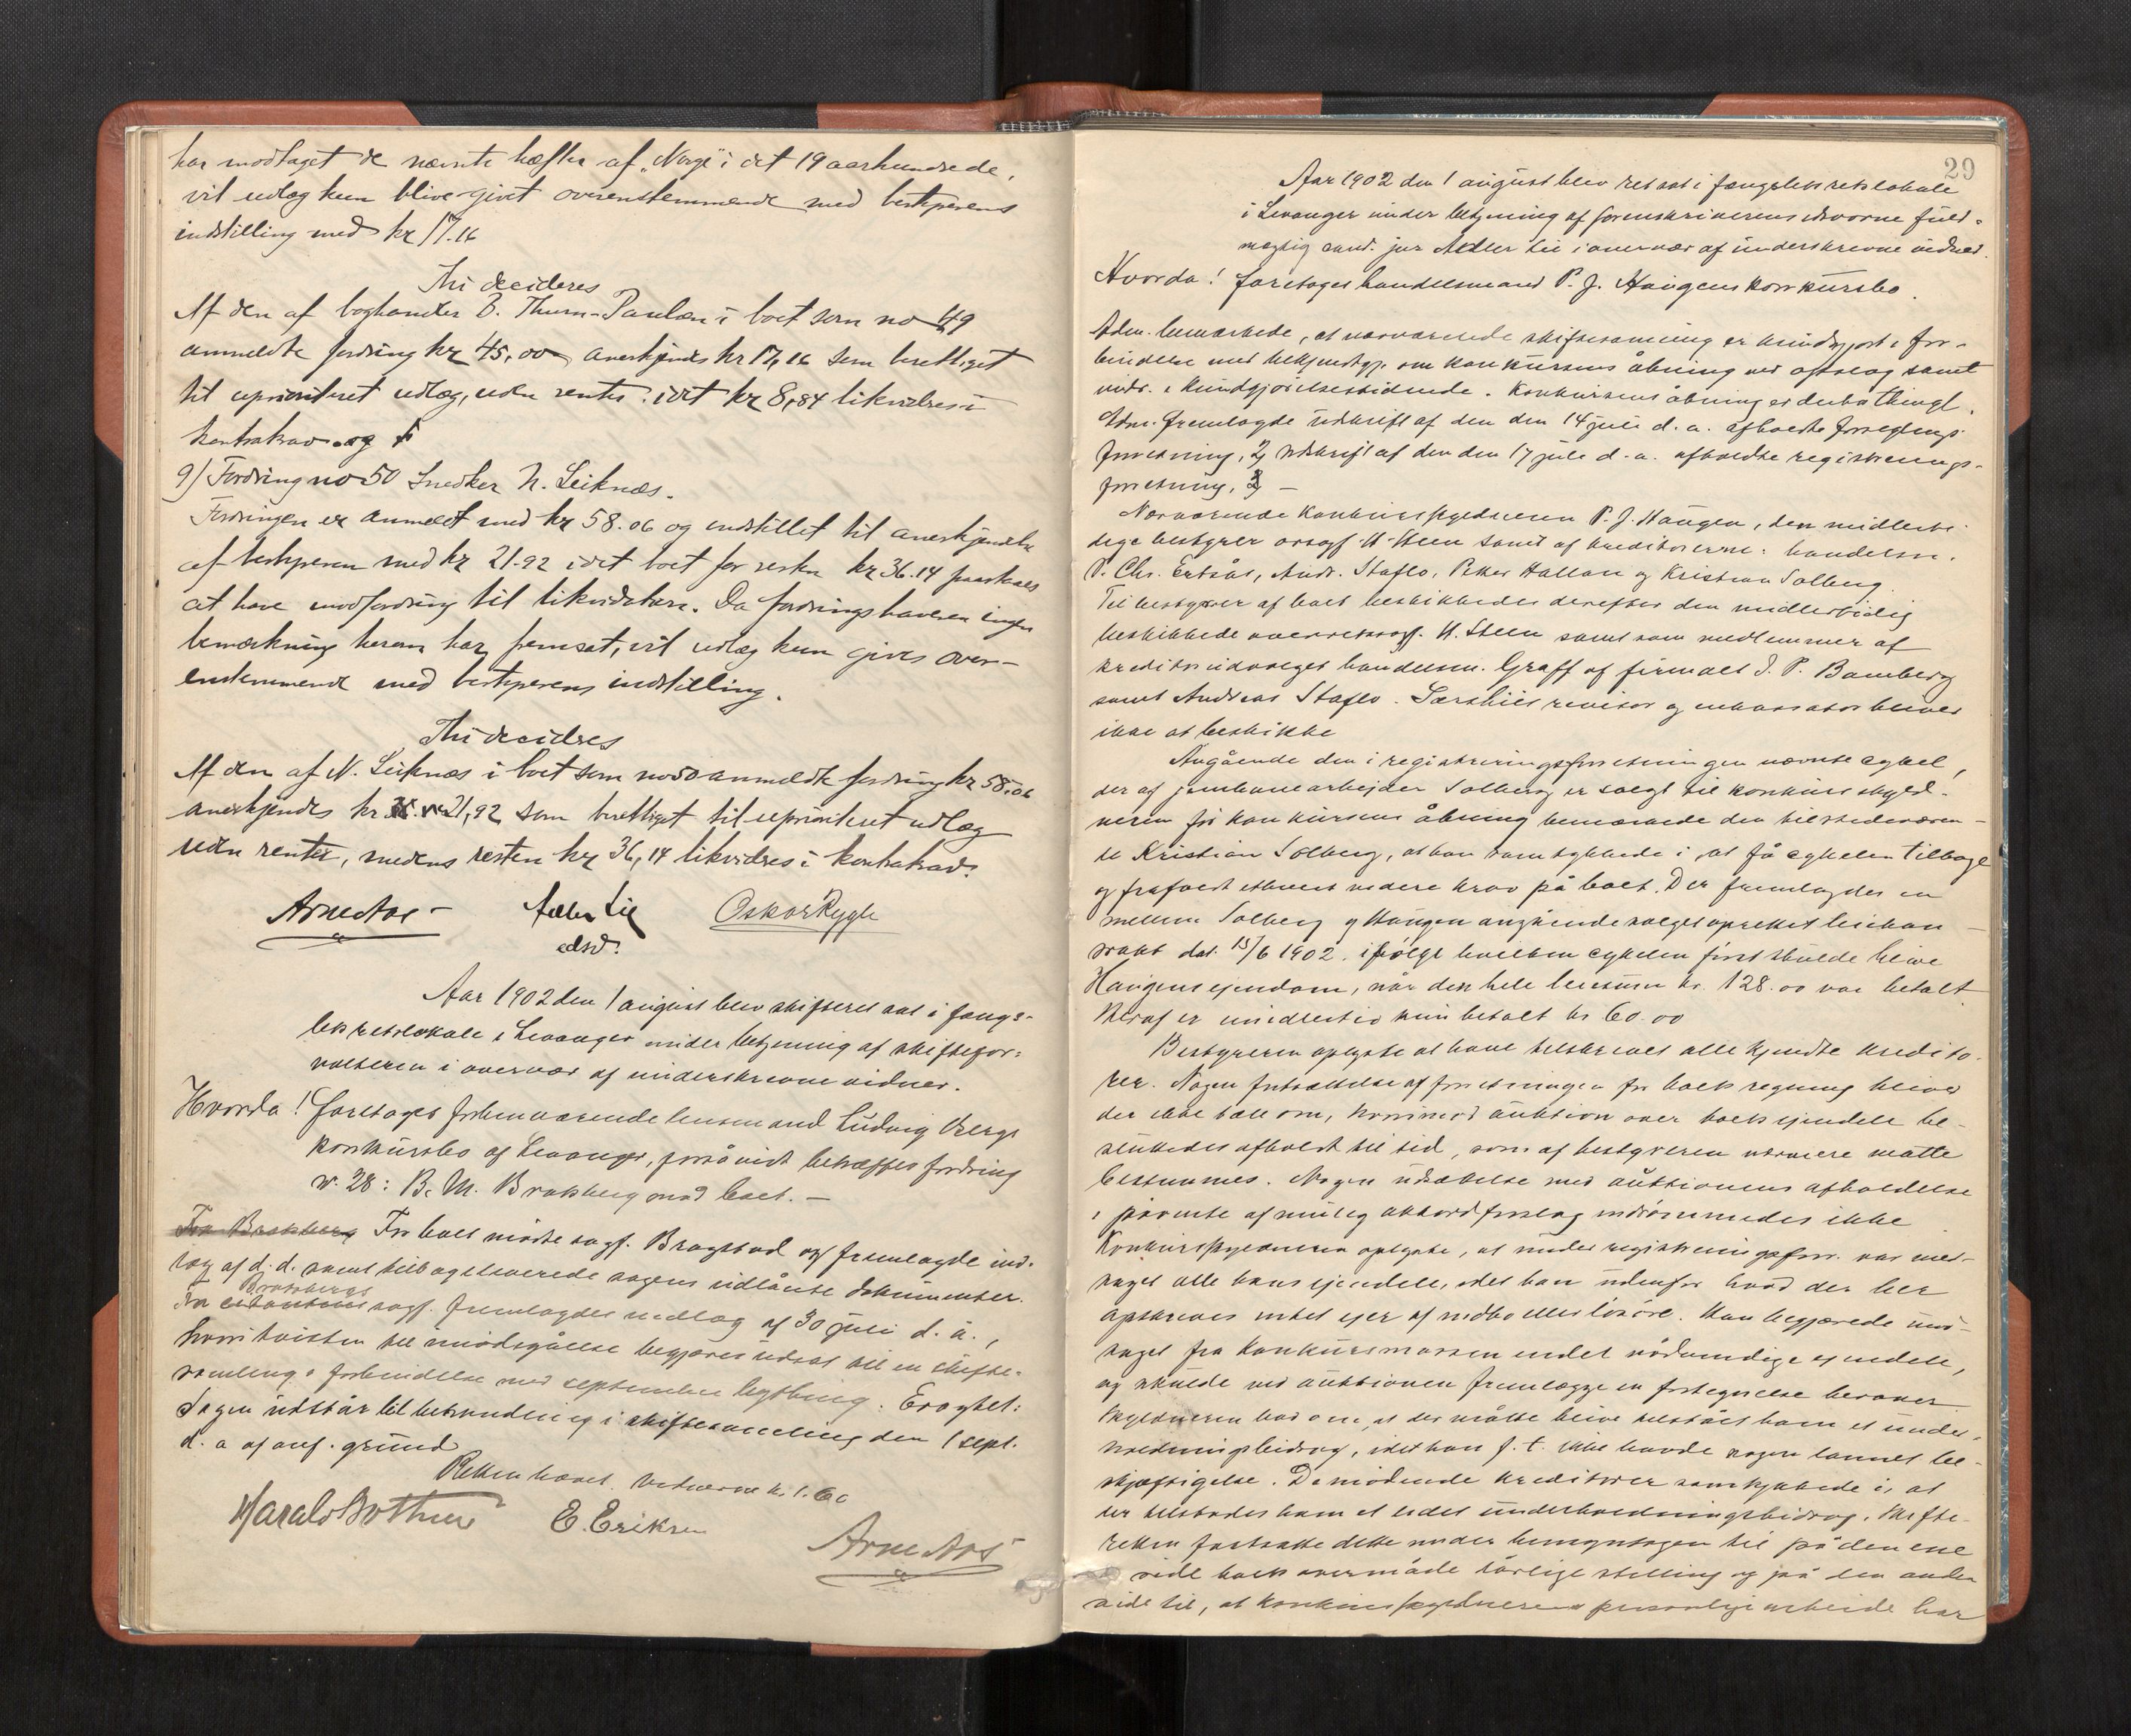 har modtaget de nævnte hæfter af „Norge" i det 19 aarhundrede,
vil udlæg kun blive givet overensstemmende med bestyrerens
indstilling med kr 17.16
Thi decideres
Af den af boghandler B. Thurn-Paulsen i boet som no 49
anmeldte fordring kr 45,00 anerkjendes kr 17,16 som berettiget
til uprioriteret udlæg, uden renter idet kr 8,84 likvidres i
kontrakrav og
9) Fordring no 50 Snedker N. Leiknæs.
Fordringen er anmeldt med kr 58.06 og indstillet til anerkjendelse
af bestyreren med kr 21.92 idet boet for resten kr 36.14 paastaaes
at have modfordring til likvidation. Da fordringshaveren ingen
bemærkning herom har fremsat, vil udlæg kun gives over-
ensstemmende med bestyrerens indstilling.
Thi decidres
Af den af N. Leiknæs i boet som no 50 anmeldte fordring kr 58.06
anerkjendes kr 21,92 som berettiget til uprioriteret udlæg
uden renter, medens resten kr 36,14 likvidres i kontrakrav.
Arne Aos Adler Lie Oskar Rygh
edsv.
Aar 1902 den 1 august blev skifteret sat i fængs-
lets retslokale i Levanger under betjening af skiftefor-
valteren i overvær af underskrevne vidner.
Hvorda! foretoges forhenværende lensmand Ludvig Bergs
konkursbo af Levanger, forsåvidt betræffer fordring
nr. 28: B. M. Braksberg mod boet. —
Fra Braksberg For boet mødte sagf. Bragstad og fremlagde ind-
læg af d. d. samt tilbageleverede sagens udlånte dokumenter.
Braksbergs
Fra citantens sagf. fremlagdes indlæg af 30 juli d. å.,
hvori tvisten til imødegåelse begjæres udsat til en skifte-
samling i forbindelse med september bything. Eragtet:
Sagen udstår til behandling i skiftesamling den 1 sept.
d. a af anf. grund
Retten hævet. Vidnerne kr. 1.60
Harald Bothner E. Eriksen
Arne Aos
29
Aar 1902 den 1 august blev ret sat i fængslets retslokale
i Levanger under betjening af sorenskriverens edsvorne fuld-
mægtig cand. jur Adler Lie i overvær af underskrevne vidner.
Hvorda! foretoges handelsmand P. J. Haugens konkursbo.
Adm. bemærkede, at nærværende skiftesamling er kundgjort i for-
bindelse med bekjendtgj. om konkursens åbning ved opslag samt
indr. i Kundgjørelsestidende. Konkursens åbning er derhos thinglæst.
Adm. fremlagde udskrift af den den 14 juli d. a. afholdte forseglings-
forretning, 2) udskrift af den den 17 juli d. a. afholdte registrerings-
forretning, 3 —
Nærværende konkursskyldneren P. J. Haugen, den midlerti-
dige bestyrer orsagf. H. Steen samt af kreditorerne: handelsm.
P. Chr. Ertsås, Andr. Staflo, Peter Hallan og Kristian Solberg.
Til bestyrer af boet beskikkedes derefter den midlertidig
beskikkede overretssagf. H. Steen samt som medlemmer af
kreditorudvalget handelsm. Graff af firmaet I. P. Bamberg
samt Andreas Staflo. Særskilt revisor og inkassator bliver
ikke at beskikke
Angående den i registreringsforretningen nævnte cykel,
der af jernbanearbejder Solberg er solgt til konkursskyld-
neren før konkursens åbning bemærkede den tilstedeværen-
de Kristian Solberg, at han samtykkede i, at få cykelen tilbage
og frafaldt ethvert videre krav på boet. Der fremlagdes en
mellem Solberg og Haugen angående salget oprettet leiekon-
trakt dat. 15/6 1902, ifølge hvilken cykelen først skulde blive
Haugens ejendom, når den hele leiesum kr. 128.00 var betalt.
Heraf er imidlertid kun betalt kr 60.00
Bestyreren oplyste at have tilskrevet alle kjendte kredito-
rer. Nogen fortsættelse af forretningen for boets regning bliver
der ikke tale om, hvorimod auktion over boets ejendele be-
sluttedes afholdt til tid, som af bestyreren nærmere måtte
bestemmes. Nogen udsættelse med auktionens afholdelse
i påvente af mulig akkordforslag indrømmedes ikke.
Konkursskyldneren oplyste, at under registreringsforr. var med-
taget alle hans ejendele, idet han udenfor hvad der her
opskreves intet ejer af indbo eller løsøre. Han begjærede und-
taget fra konkursmassen endel nødvendige ejendele,
og skulde ved auktionen fremlægge en fortegnelse herover.
Skyldneren bad om, at der måtte blive tilstået ham et under-
holdningsbidrag, idet han f. t. ikke havde nogen lønnet be-
skjæftigelse. De mødende kreditorer samtykkede i, at
der tilstodes ham et lidet underholdningsbidrag. Skifte-
retten fastsatte dette under hensyntagen til på den ene
side boets overmåde dårlige stilling og på den anden
side til, at konkursskyldnerens personlige arbeide har